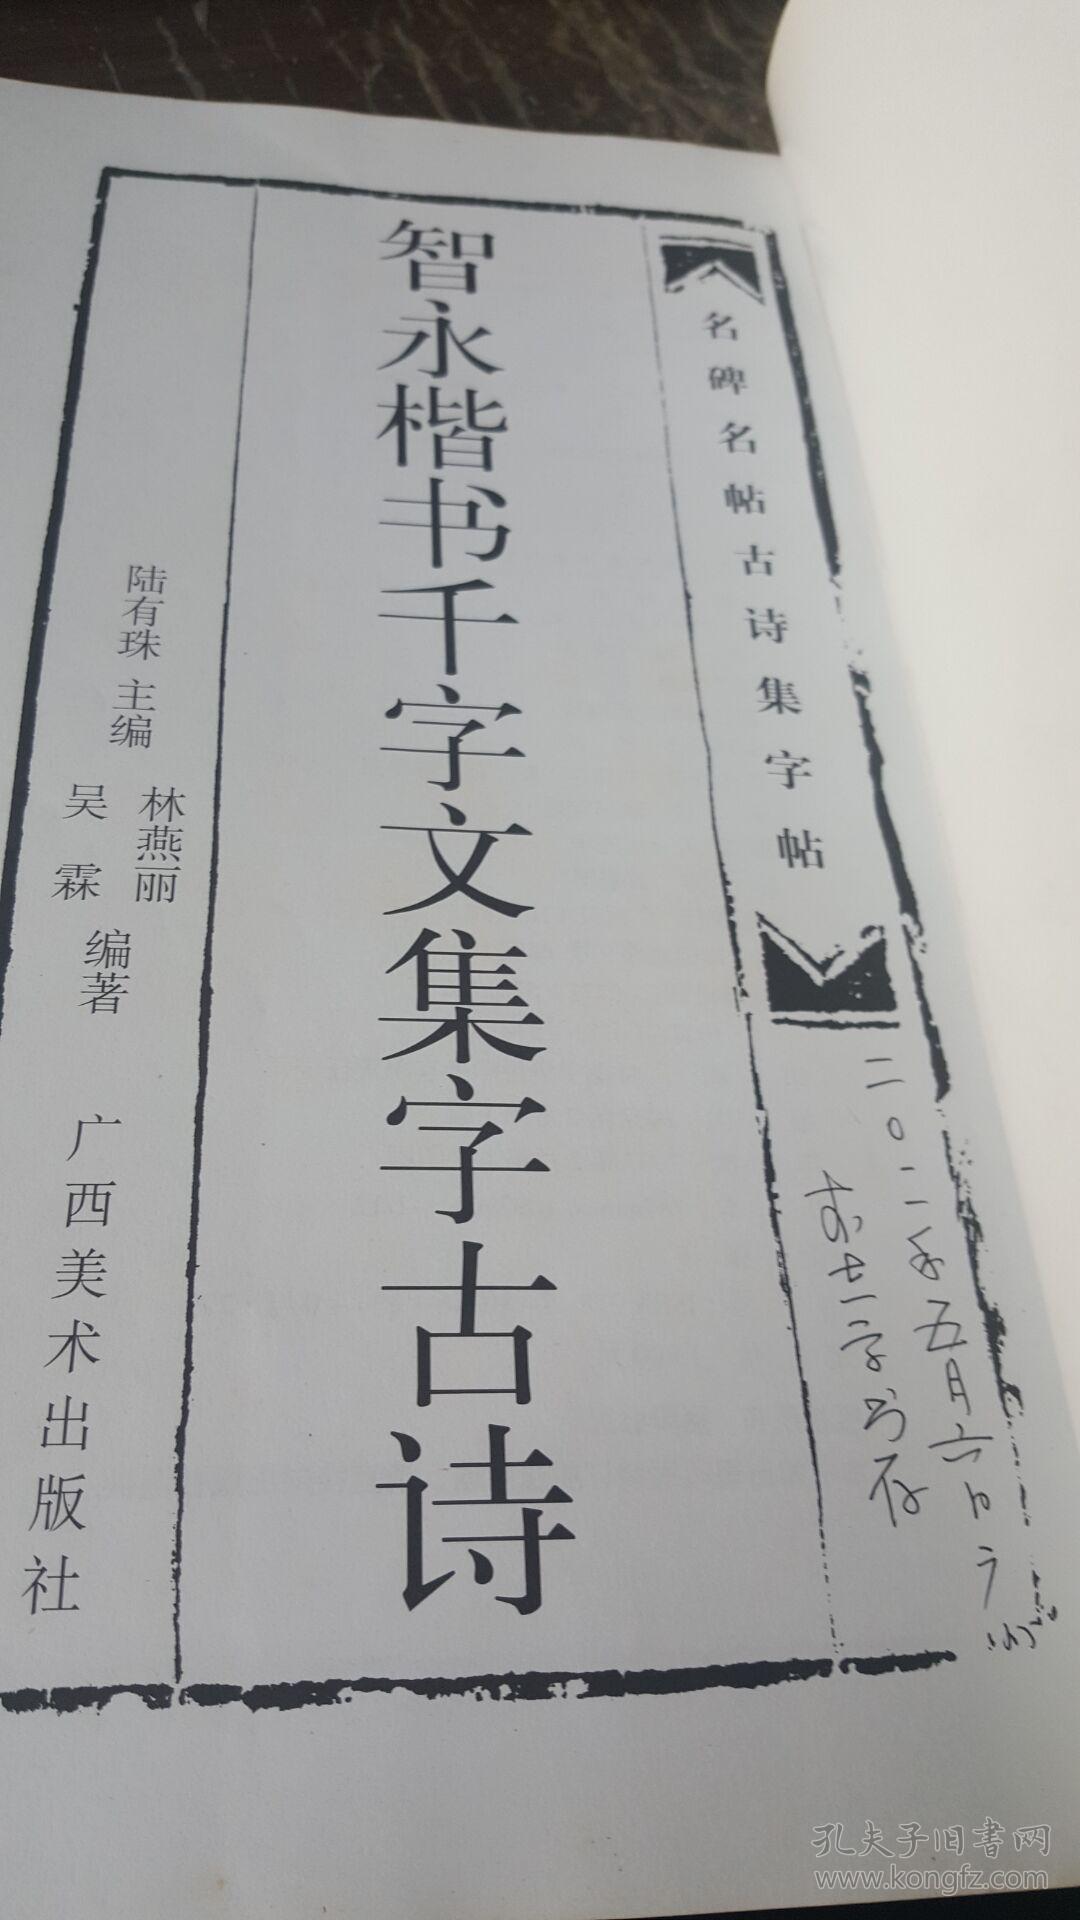 名碑名帖古诗集字帖
二〇一二年五月六日
书存
智永楷书千字文集字古诗
陆有珠 主编
林燕丽
吴霖
编著
广西美术出版社
孔夫子旧书网
www.kongfz.com